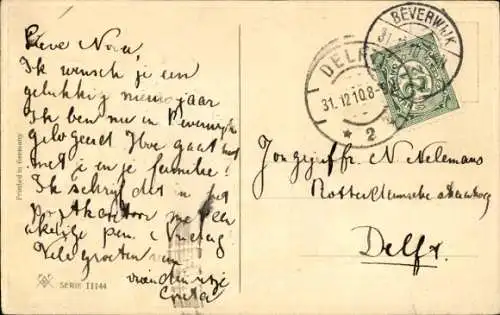 Lieve Nora,
Ik wensch je een
gelukkig nieuwjaar
Ik ben nu in Beverwijk
gelogeerd Hoe gaat het
met je en je familie?
Ik schrijf dit in het
Postkantoor met een
akelige pen.
Vele groeten van
vriendinnetje
Greta
Printed in Germany
SERIE 11144
DELFT
31.12.10.8-
* 2
BEVERWIJK
31.
Jongejuffr. N Nelemans
Rotterdamsche
Delft.